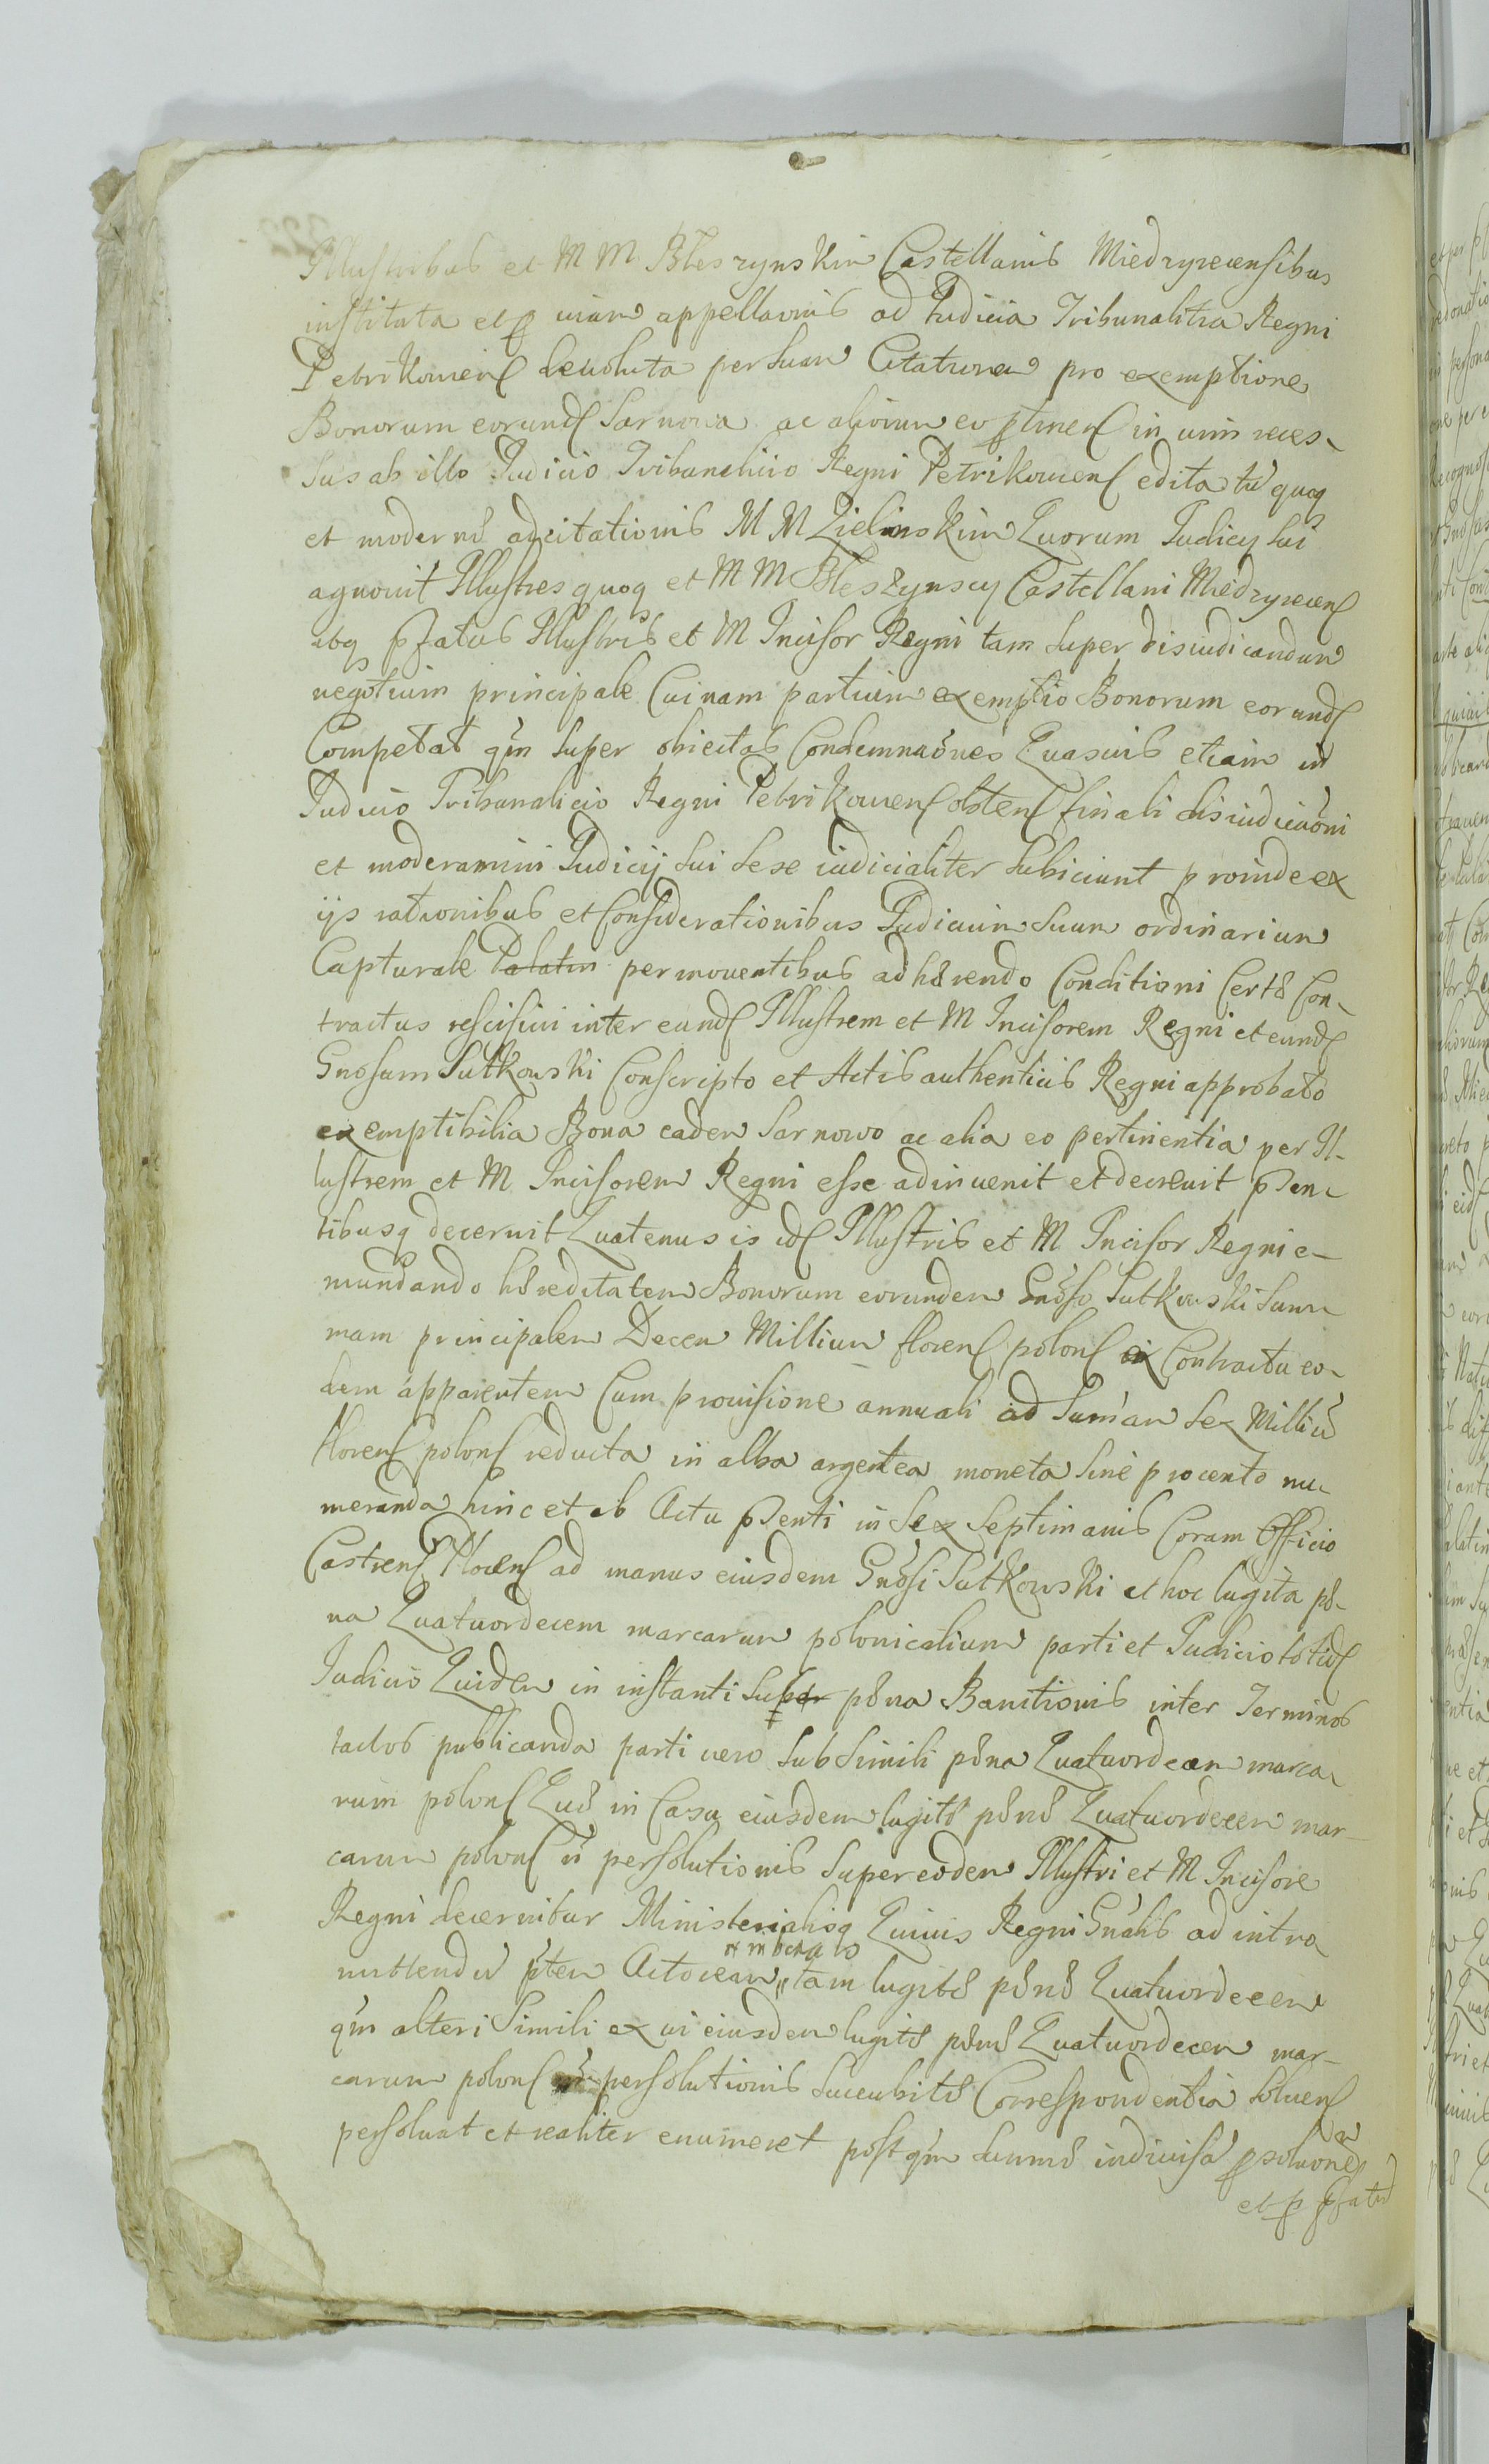 Illustribus et M M Bleszynskim Castellanis Miedzyrzecensibus
instituta et p viam appellaonis ad Iudicia Tribunalitia Regni
Petrikowien devoluta per suam Citationem pro exemptione
Bonorum eorund Sarnowa ac aliorum eo ptinen in vim reces-
sus ab illo Iudicio Tribunalicio Regni Petrikowien edita tū quoq
et modernæ adcitationis M M Zielinskim Quorum Iudicy sui
agnovit Illustres quoq et M M Bleszynscy Castellani Miedzyrzecen
atq pfatus Illustris et M Incisor Regni tam super disiudicandum
negotium principale Cuinam partium exemptio Bonorum eorund
Competat qm super obiectas Condemnaōnes Quasvis etiam in
Iudicio Tribunalicio Regni Petrikowien obten finali disiudicaōni
et moderamini Iudicij sui sese iudicialiter subiciunt proinde ex
ijs rationibus et Considerationibus Iudicium suum ordinarium
Capturale Palatin permoventibus adhærendo Conditioni Certæ Con-
tractus rescisivi inter eund Illustrem et M Incisorem Regni et eund
Gnosum Sutkowski Conscripto et Actis authenticis Regni approbato
exemptibilia Bona eadem Sarnowo ac alia eo pertinentia per Il-
lustrem et M Incisorem Regni esse adinvenit et decrevit pσen-
tibusq decernit Quatenus is id Illustris et M Incisor Regni e-
mundando hæreditatem Bonorum eorundem Gnoso Sutkowski Sum-
mam principalem Decem Millium floren polon ex Contractu eo-
dem apparentem Cum provisione annuali ad Sumam Sex Milliū
floren polon reducta in alba argentea moneta sine procento nu-
meranda hinc et ab Actu pσenti in Sex Septimanis Coram Officio
Castren ad manus eiusdem Gnosi Sutkowski et hoc lugita pæ-
na Quatuordecem marcarum polonicalium parti et Iudicio totid
Iudicio Quidem in instanti super pæna Banitionis inter Terminos
tactos publicanda parti vero sub simili pæna Quatuordecem marca-
rum polon Quæ in Casu eiusdem lugitæ pænæ Quatuordecem mar-
carum polon ñ persolutionis super eodem Illustri et M Incisore
Regni decernitur Ministerialisq Quivis Regni Gnalis ad intro-
mittendū ptem Actoream tam lugitæ pænæ Quatuordecem
qm alteri Simili ex vi eiusdem lugitæ pænæ Quatuordecem mar-
carum polon persolutionis succubitæ Correspondentia solven
persolvat et realiter enumeret post qm summæ indivisa psoluonem
et p pfatū